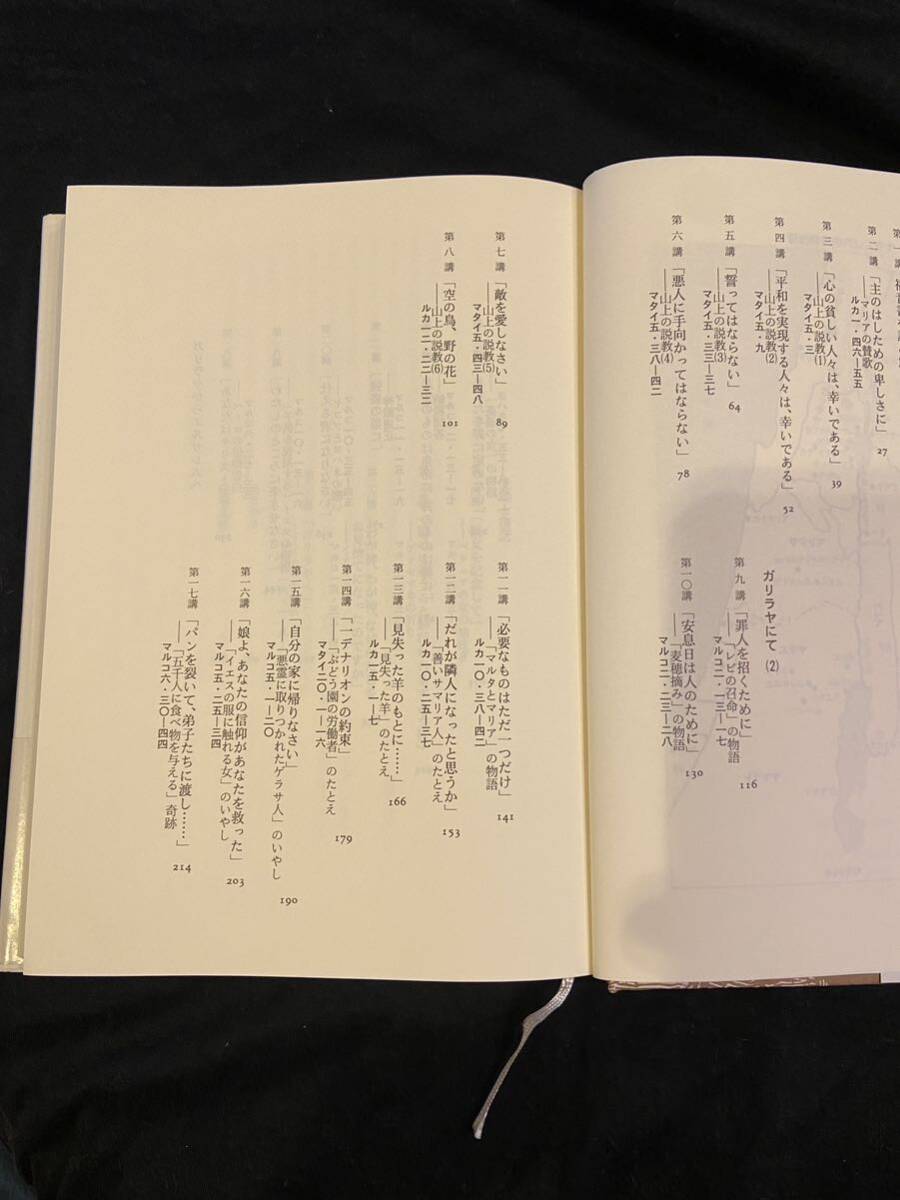 第二講「主のはしための卑しさに」 27
——マリアの賛歌
ルカ一・四六—五五
第三講「心の貧しい人々は、幸いである」 39
——山上の説教(1)
マタイ五・三
第四講「平和を実現する人々は、幸いである」 52
——山上の説教(2)
マタイ五・九
第五講「誓ってはならない」 64
——山上の説教(3)
マタイ五・三三—三七
第六講「悪人に手向かってはならない」 78
——山上の説教(4)
マタイ五・三八—四二
ガリラヤにて(2)
第九講「罪人を招くために」 116
——「レビの召命」の物語
マルコ二・一三—一七
第一〇講「安息日は人のために」 130
——「麦穂摘み」の物語
マルコ二・二三—二八
第七講「敵を愛しなさい」 89
——山上の説教(5)
マタイ五・四三—四八
第八講「空の鳥、野の花」 101
——山上の説教(6)
ルカ一二・二二—三二
第一一講「必要なものはただ一つだけ」 141
——「マルタとマリア」の物語
ルカ一〇・三八—四二
第一二講「だれが隣人になったと思うか」 153
——「善いサマリア人」のたとえ
ルカ一〇・二五—三七
第一三講「見失った羊のもとに……」 166
——「見失った羊」のたとえ
ルカ一五・一—七
第一四講「一デナリオンの約束」 179
——「ぶどう園の労働者」のたとえ
マタイ二〇・一—一六
第一五講「自分の家に帰りなさい」 190
——「悪霊に取りつかれたゲラサ人」のいやし
マルコ五・一—二〇
第一六講「娘よ、あなたの信仰があなたを救った」 203
——「イエスの服に触れる女」のいやし
マルコ五・二五—三四
第一七講「パンを裂いて、弟子たちに渡し……」 214
——「五千人に食べ物を与える」奇跡
マルコ六・三〇—四四